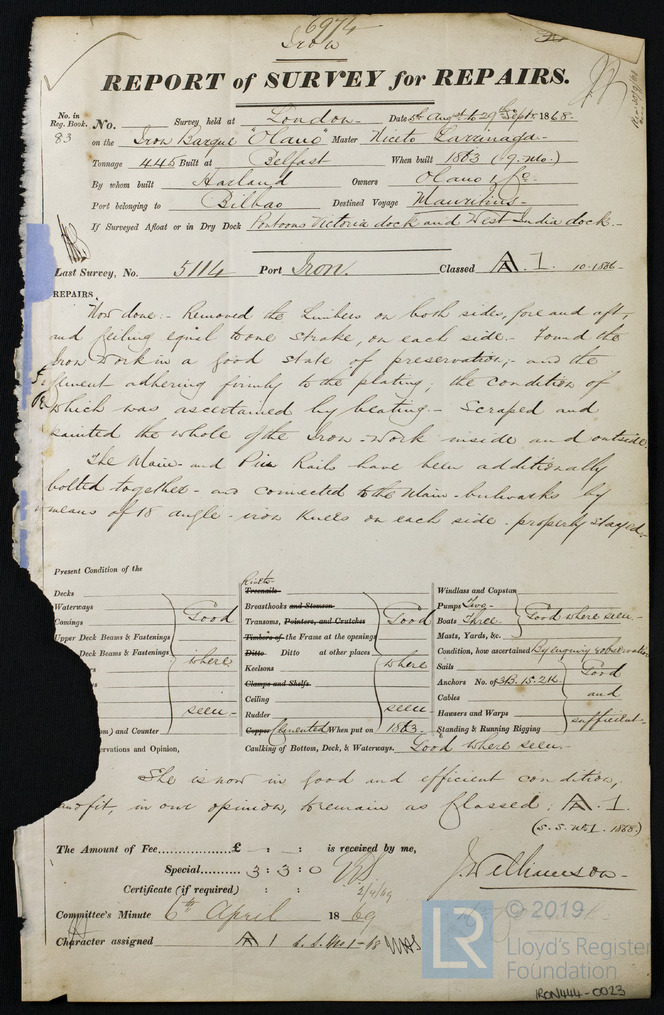 6974
Iron
REPORT of SURVEY for REPAIRS.
No. in Reg. Book. 83 No. Survey held at London Date 5th Augst to 29 Septr. 1868.
on the Iron Barque "Olano" Master Niceto Larrinaga
Tonnage 445 Built at Belfast When built 1863 (9. mo.)
By whom built Harland Owners Olano & Co.
Port belonging to Bilbao Destined Voyage Mauritius
If Surveyed Afloat or in Dry Dock Pontoons Victoria dock and West India dock.
Last Survey, No. 5114 Port Iron. Classed A.1. 10.1866
REPAIRS.
Now done:- Removed the Limbers on both sides, fore and aft,
and Ceiling equal to one strake, on each side. Found the
Iron work in a good state of preservation; and the
Cement adhering firmly to the plating; the condition of
which was ascertained by beating. Scraped and
painted the whole of the Iron-work inside and outside.
The Main and Pin Rails have been additionally
bolted together and connected to the Main bulwarks by
means of 18 angle-iron knees on each side properly stayed.
Present Condition of the
Decks
Waterways
Comings
Upper Deck Beams & Fastenings
Deck Beams & Fastenings
Good where seen
and Counter
ervations and Opinion,
Rivets
Treenails
Breasthooks and Stemson
Transoms, Pointers, and Crutches
Timbers of the Frame at the openings
Ditto Ditto at other places
Keelsons
Clamps and Shelfs
Ceiling
Rudder
Good where seen
Copper Cemented When put on 1863
Caulking of Bottom, Deck, & Waterways. Good where seen
Windlass and Capstan
Pumps Two
Boats Three
Masts, Yards, &c.
Good where seen
Condition, how ascertained By enquiry & observation
Sails
Anchors No. of 3B. 1S. 2K
Cables
Hawsers and Warps
Standing & Running Rigging
Good and sufficient
She is now in good and efficient condition,
and fit, in our opinion, to remain as Classed; A.1.
(S.S. No.1. 1868)
The Amount of Fee £ : : is received by me,
Special 3 : 3 : 0
Certificate (if required) : : 2/4/69
J. Williamson
Committee's Minute 6th April 1869
Character assigned A 1 S.S. No 1-68
© 2019
LR
Lloyd's Register
Foundation
IRON444-0023